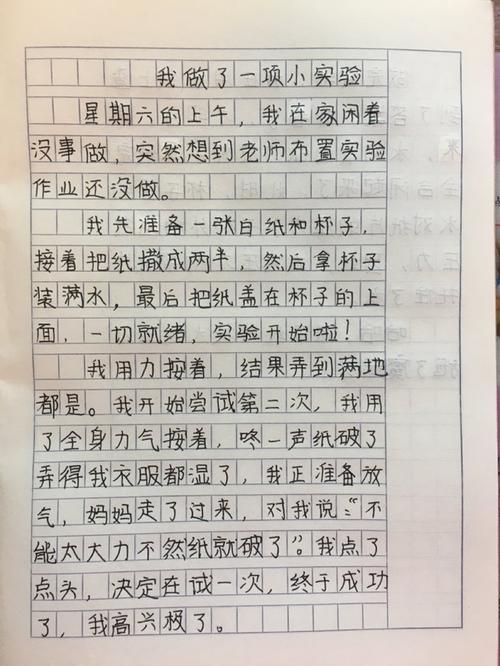 我做了一项小实验
星期六的上午，我在家闲着
没事做，突然想到老师布置实验
作业还没做。
我先准备一张白纸和杯子，
接着把纸撒成两半，然后拿杯子
装满水，最后把纸盖在杯子的上
面，一切就绪，实验开始啦！
我用力按着，结果弄到满地
都是。我开始尝试第二次，我用
了全身力气按着，咚一声纸破了
弄得我衣服都湿了，我正准备放
气，妈妈走了过来，对我说：“不
能太大力不然纸就破了”。我点了
点头，决定在试一次，终于成功
了，我高兴极了。